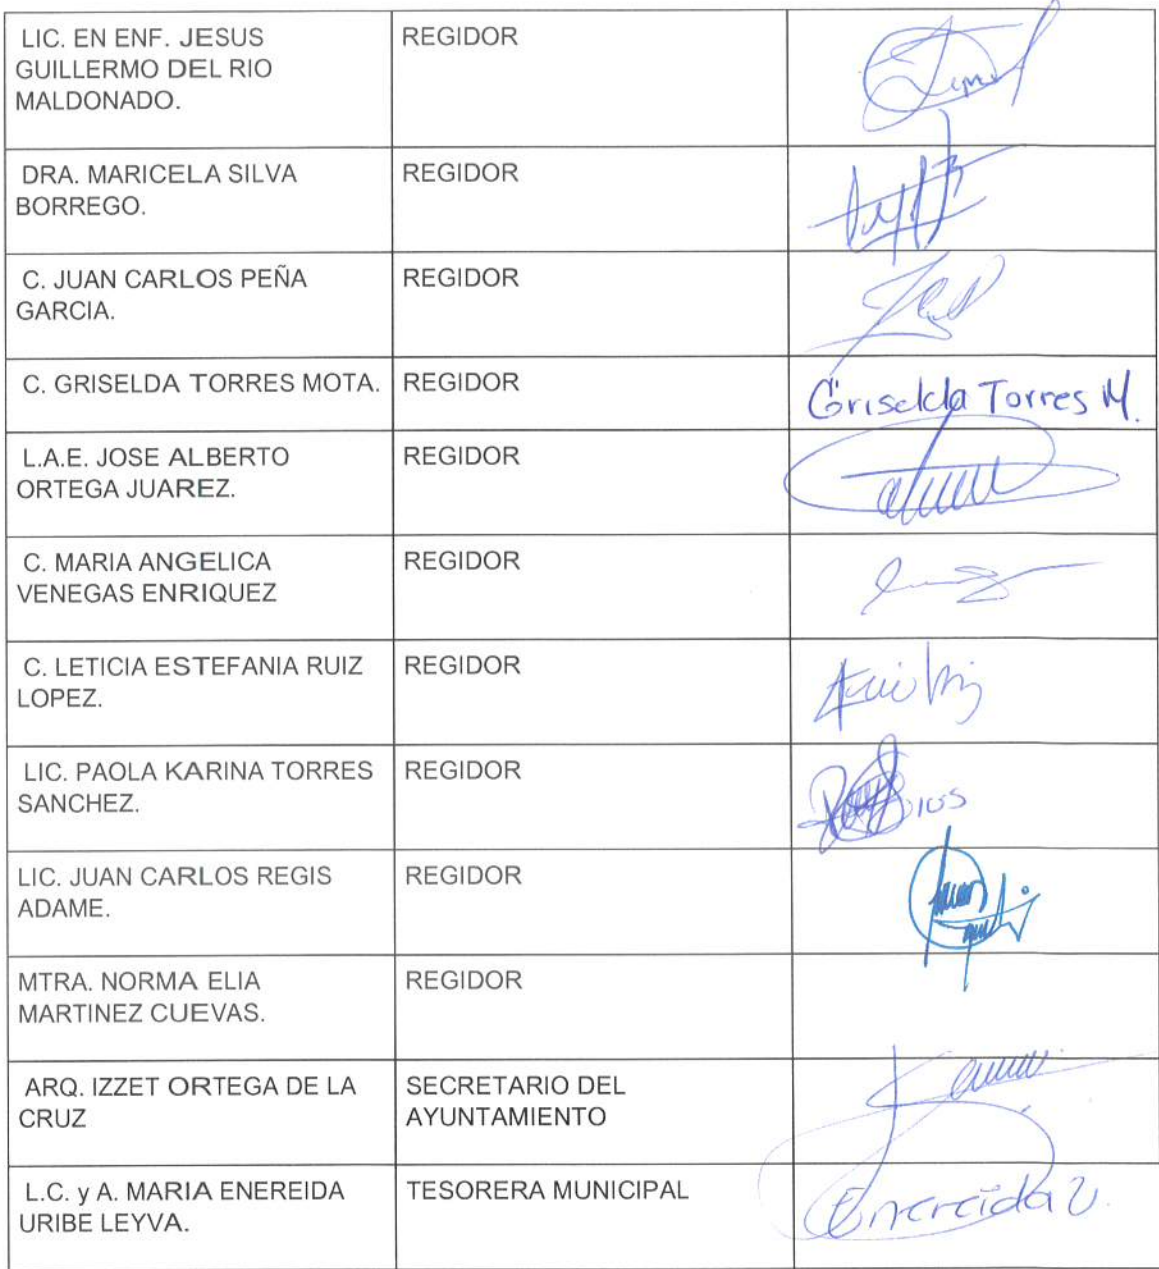 LIC. EN ENF. JESUS
GUILLERMO DEL RIO
MALDONADO.
REGIDOR
DRA. MARICELA SILVA
BORREGO.
REGIDOR
C. JUAN CARLOS PEÑA
GARCIA.
REGIDOR
C. GRISELDA TORRES MOTA.
REGIDOR
Griselda Torres M.
L.A.E. JOSE ALBERTO
ORTEGA JUAREZ.
REGIDOR
C. MARIA ANGELICA
VENEGAS ENRIQUEZ
REGIDOR
C. LETICIA ESTEFANIA RUIZ
LOPEZ.
REGIDOR
LIC. PAOLA KARINA TORRES
SANCHEZ.
REGIDOR
LIC. JUAN CARLOS REGIS
ADAME.
REGIDOR
MTRA. NORMA ELIA
MARTINEZ CUEVAS.
REGIDOR
ARQ. IZZET ORTEGA DE LA
CRUZ
SECRETARIO DEL
AYUNTAMIENTO
L.C. y A. MARIA ENEREIDA
URIBE LEYVA.
TESORERA MUNICIPAL
Enereida U.